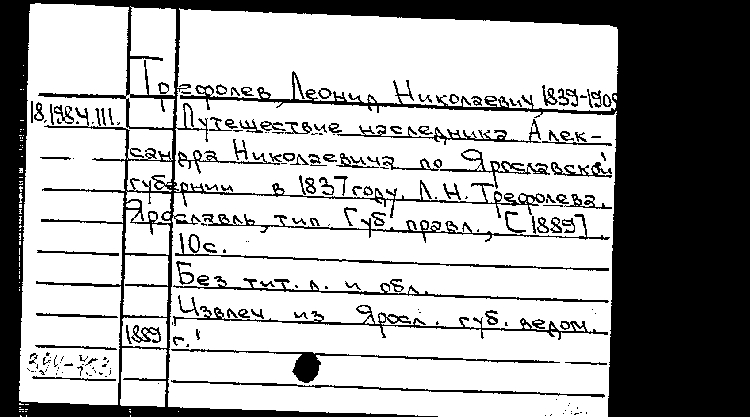 Трефолев, Леонид Николаевич, 1839-190
18.198.4.111. Путешествие наследника Алек-
сандра Николаевича по Ярославской
губернии в 1837 году. Л.Н. Трефолева.
Ярославль, тип. Губ. правл., [1889].
10с.
Без тит. л. и обл.
Извлеч. из "Яросл. губ. ведом.
1889 г."
394-753